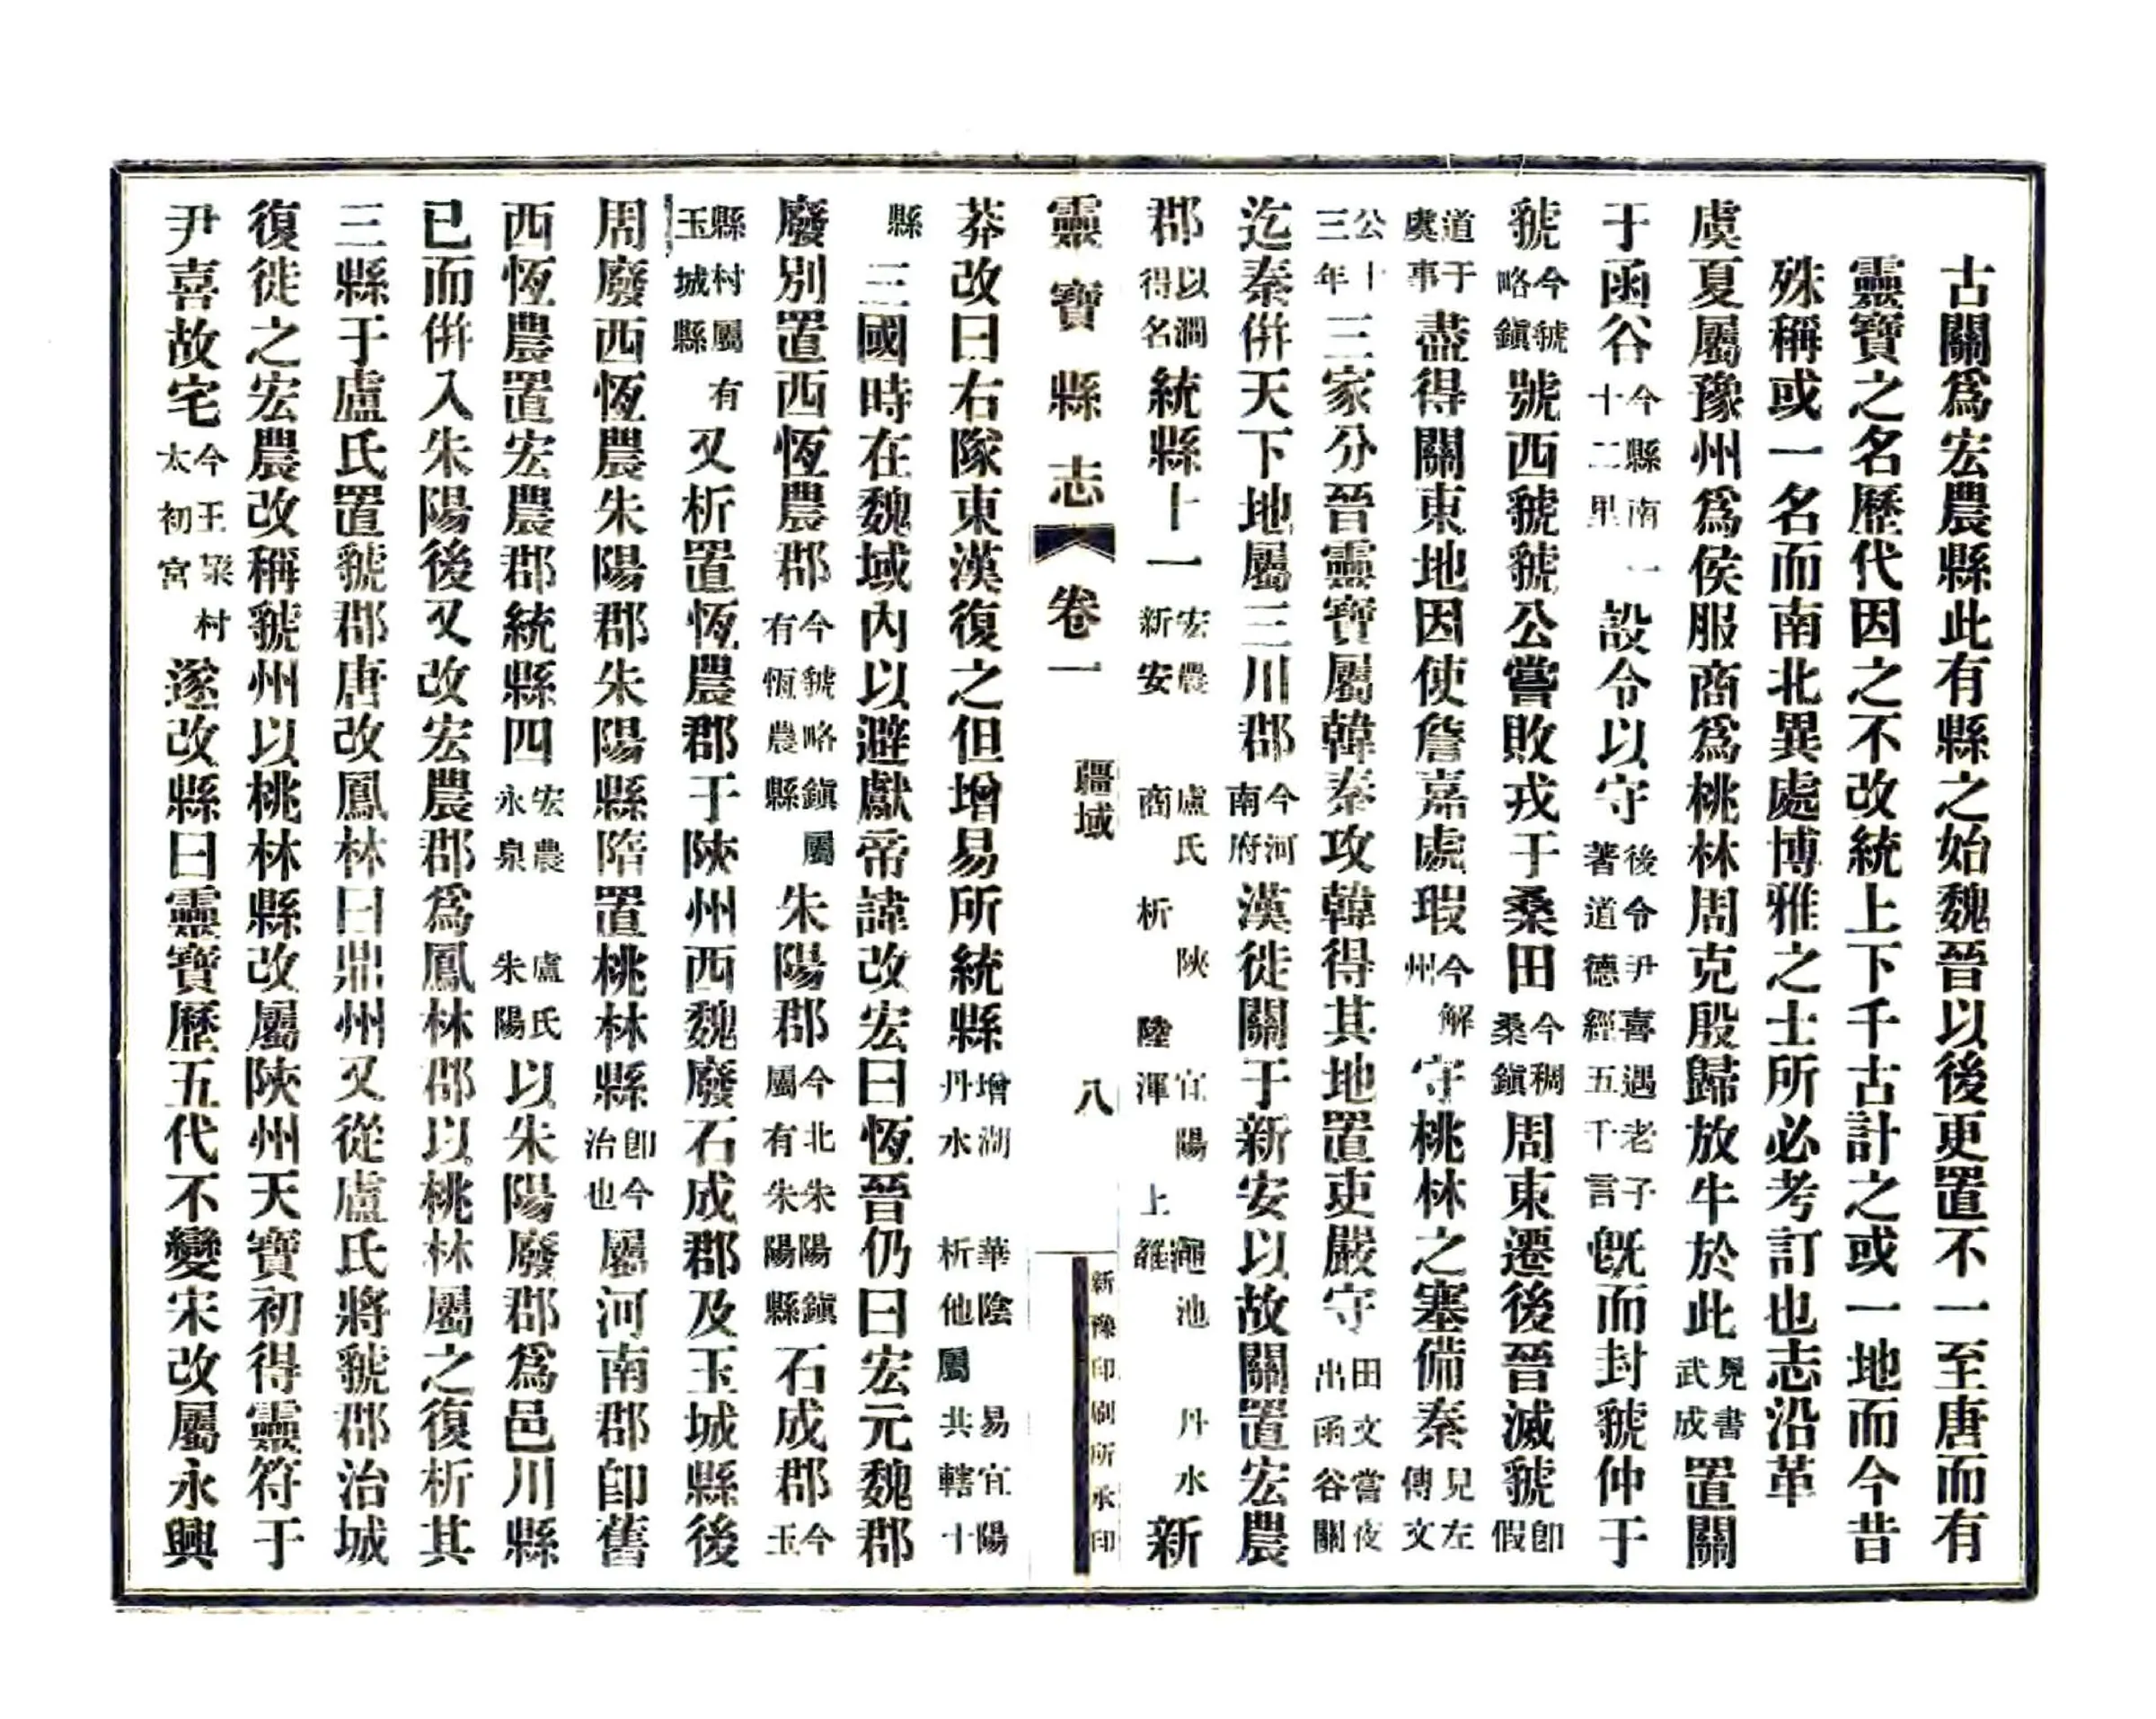 古關爲宏農縣此有縣之始魏晉以後更置不一至唐而有
靈寶之名歷代因之不改統上下千古計之或一地而今昔
殊稱或一名而南北異處博雅之士所必考訂也志沿革
虞夏屬豫州爲侯服商爲桃林周克殷歸放牛於此見書武成置關
于函谷今縣南一十二里設令以守後令尹喜遇老子著道德經五千言旣而封虢仲于
虢今虢略鎭號西虢虢公嘗敗戎于桑田今稠桑鎭周東遷後晉滅虢卽假
道于虞事盡得關東地因使詹嘉處瑕今解州守桃林之塞備秦見左傳文
公十三年三家分晉靈寶屬韓秦攻韓得其地置吏嚴守田文嘗夜出函谷關
迄秦併天下地屬三川郡今河南府漢徙關于新安以故關置宏農
郡以澗得名統縣十一宏農 盧氏 陝 宜陽 黽池 丹水 新安 商 析 陸渾 上雒新
靈寶縣志 卷一 疆域 八 新豫印刷所承印
莽改曰右隊東漢復之但增易所統縣增湖 華陰 易宜陽丹水 析他屬共轄十
縣三國時在魏域內以避獻帝諱改宏曰恆晉仍曰宏元魏郡
廢別置西恆農郡今虢略鎭屬有恆農縣朱陽郡今北朱陽鎭屬有朱陽縣石成郡今玉
縣村屬有玉城縣又析置恆農郡于陝州西魏廢石成郡及玉城縣後
周廢西恆農朱陽郡朱陽縣隋置桃林縣卽今治也屬河南郡卽舊
西恆農置宏農郡統縣四宏農 盧氏永泉 朱陽以朱陽廢郡爲邑川縣
已而併入朱陽後又改宏農郡爲鳳林郡以桃林屬之復析其
三縣于盧氏置虢郡唐改鳳林曰鼎州又從盧氏將虢郡治城
復徙之宏農改稱虢州以桃林縣改屬陝州天寶初得靈符于
尹喜故宅今王垜村太初宮遂改縣曰靈寶歷五代不變宋改屬永興